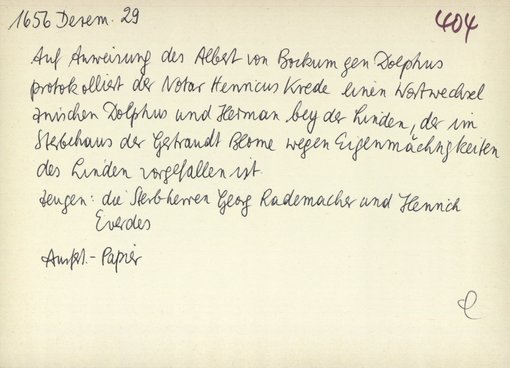 1656 Dezem. 29
404
Auf Anweisung des Albert von Bockum gen Dolphus
protokolliert der Notar Henricus Krede einen Wortwechsel
zwischen Dolphus und Herman bey der Linden, der im
Sterbehaus der Gertraudt Blome wegen Eigenmächtigkeiten
des Linden vorgefallen ist
Zeugen: die Sterbherren Georg Rademacher und Hennrich
Everdes
Ausfert.-Papier